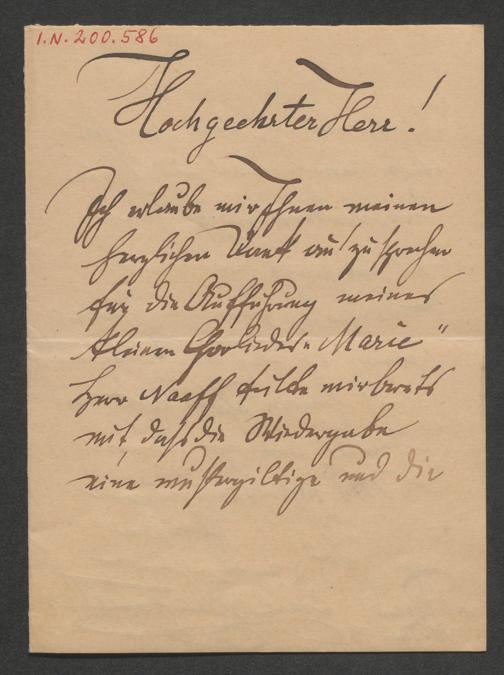 I.N. 200.586
Hochgeehrter Herr!
Ich erlaube mir Ihnen meinen
herzlichen Dank auszusprechen
für die Aufführung meines
kleinen Chorliedes „Marie"
Herr Naaff teilte mir bereits
mit, dass die Wiedergabe
eine mustergiltige und die